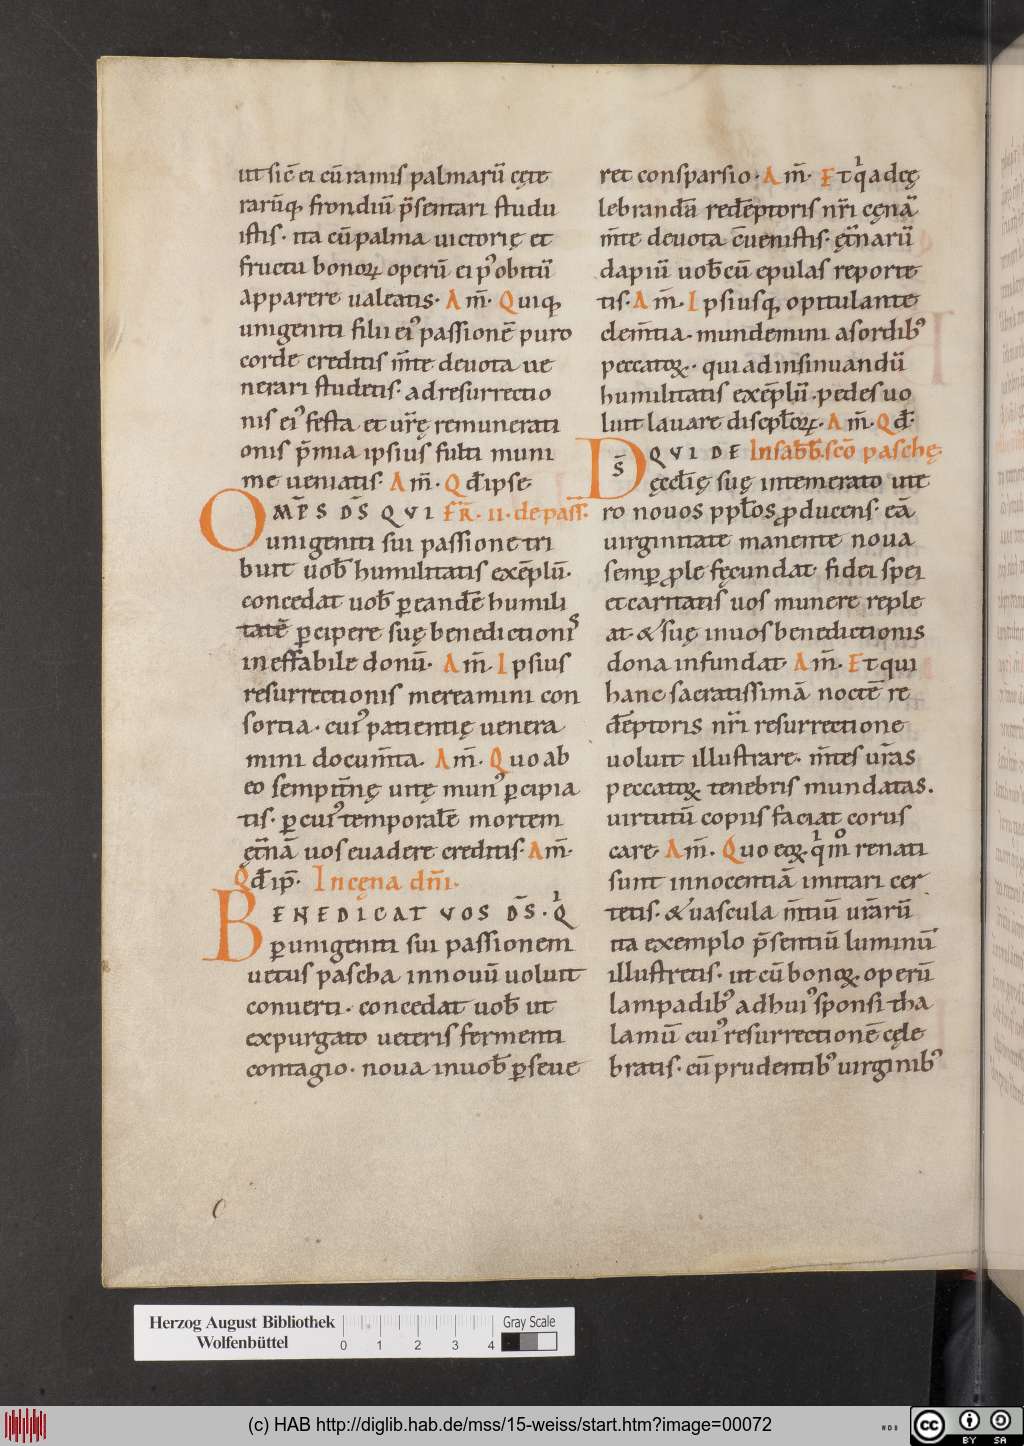 ut sic̄ ei cū ramis palmarū cęte
rarūq; frondiū p̄sentari studu
istis · ita cū palma uictorię et
fructu bonoꝝ operū ei p᾿ obitū
apparere ualeatis · Am̄ · Quiq;
unigeniti filii ei᾿ passionē puro
corde creditis m̄te deuota ue
nerari studetis · ad resurrectio
nis ei᾿ festa et ur̄ę remunerati
onis p̄mia ipsius fulti muni
me ueniatis · Am̄ · Qd̄ ipse
OMP̄S D̄S QVI FR̄ · II · de pass̄ ·
unigeniti sui passione tri
buit uob̄ humilitatis exēplū ·
concedat uob̄ ꝑ eandē humili
tatē ꝑcipere suę benedictionis
ineffabile donū · Am̄ Ipsius
resurrectionis mereamini con
sortia · cui᾿ patientię uenera
mini docum̄ta · Am̄ · Quo ab
eo sempit̄nę uitę mun᾿ ꝑcipia
tis · ꝑ cui᾿ temporalē mortem
ęt̄nā uos euadere creditis · Am̄ ·
Qd̄ ip̄ · In cęna dn̄i ·
BENEDICAT VOS D̄S · Q
ꝑ unigeniti sui passionem
uetus pascha in nouū uoluit
conuerti · concedat uob̄ ut
expurgato ueteris fermenti
contagio · noua in uob̄ ꝑseue
ret consparsio · Am̄ · Et q ad cę
lebrandā redēptoris nr̄i cęnā
m̄te deuota c̄uenistis · ęt̄narū
dapiū uob̄cū epulas reporte
tis · Am̄ · Ipsiusq; opitulante
clem̄tia · mundemini a sordib᾿
peccatoꝝ · qui ad insinuandū
humilitatis exēplū · pedes uo
luit lauare discipl̄oꝝ · Am̄ · Qd̄ ·
D̄S QVI DE In sabb̄ · sc̄o paschę
ęccl̄ię suę intemerato ute
ro nouos ppl̄os ꝓducens · eā
uirginitate manente noua
semꝑ ꝓle fęcundat fidei spei
et caritatis uos munere reple
at · & suę in uos benedictionis
dona infundat Am̄ · Et qui
hanc sacratissimā noctē re
dēptoris nr̄i resurrectione
uoluit illustrare · m̄tes ur̄as
peccatoꝝ tenebris mundatas ·
uirtutū copiis faciat corus
care · Am̄ · Quo eoꝝ · q m̄ renati
sunt innocentiā imitari cer
tetis · & uascula m̄tiū ur̄arū
ita exemplo p̄sentiū luminū
illustretis · ut cū bonoꝝ operū
lampadib᾿ ad hui᾿ sponsi tha
lamū cui᾿ resurrectionē cęle
bratis · cū prudentib᾿ uirginib᾿
Herzog August Bibliothek
Wolfenbüttel
0 1 2 3 4
Gray Scale
(c) HAB http://diglib.hab.de/mss/15-weiss/start.htm?image=00072
cc BY SA